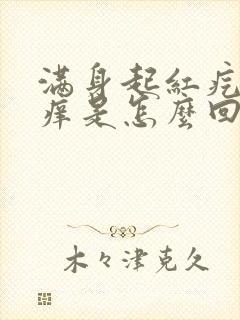 满身起紅疙
痒是怎麼回
木々津克久